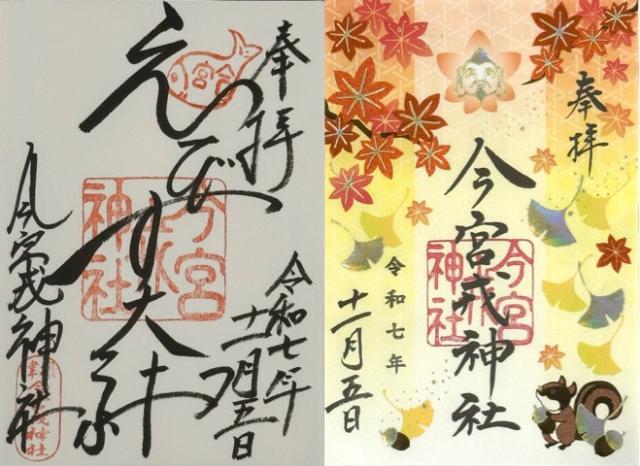 奉拝
今宮
えびす大神
今宮戎神社
令和七年
十一月五日
今宮戎神社
奉拝
今宮戎神社
今宮戎神社
令和七年
十一月五日